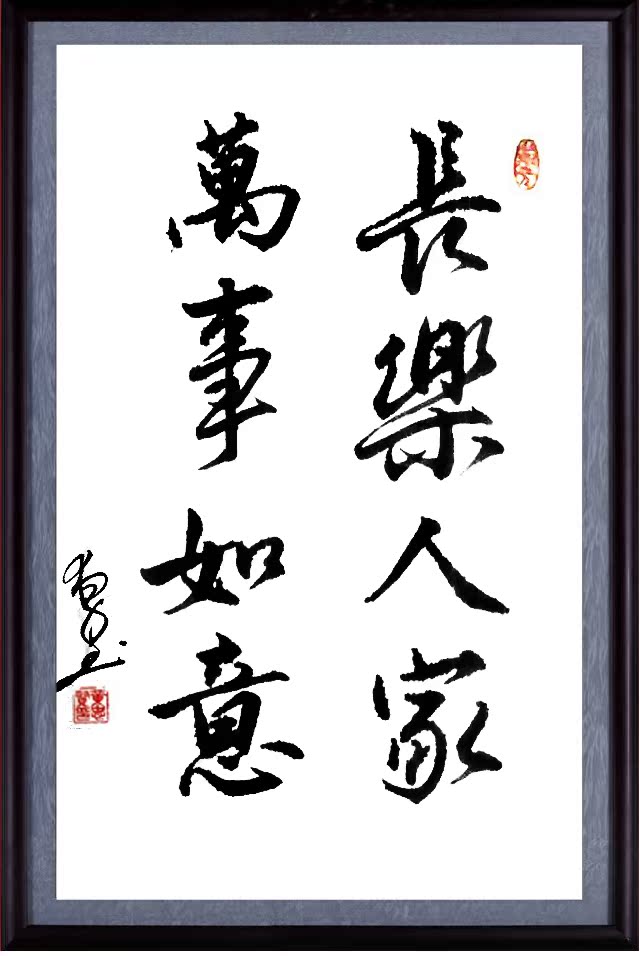 長樂人家
萬事如意